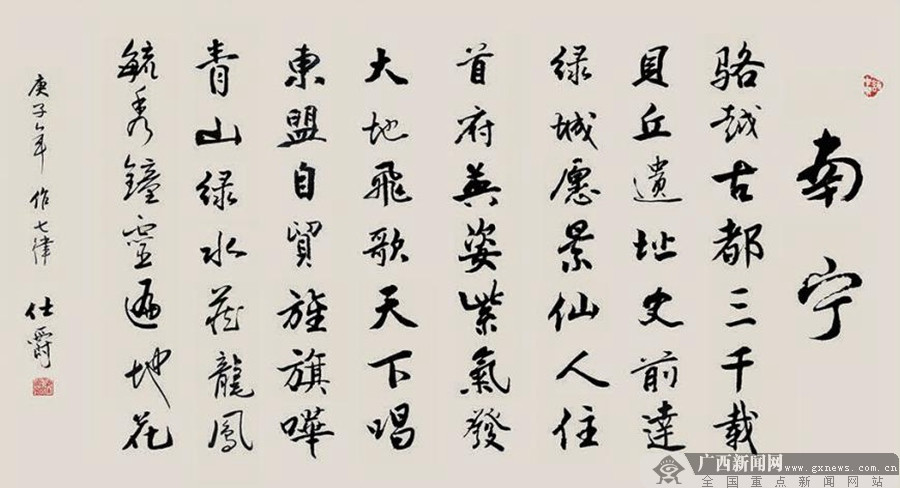 南宁
骆越古都三千载
贝丘遗址史前達
绿城愿景仙人住
首府英姿紫氣發
大地飛歌天下唱
東盟自貿旌旗嘩
青山绿水藏龍鳳
毓秀鐘靈遍地花
庚子年 作七律 仕爵
广西新闻网 www.gxnews.com.cn
全国重点新闻网站